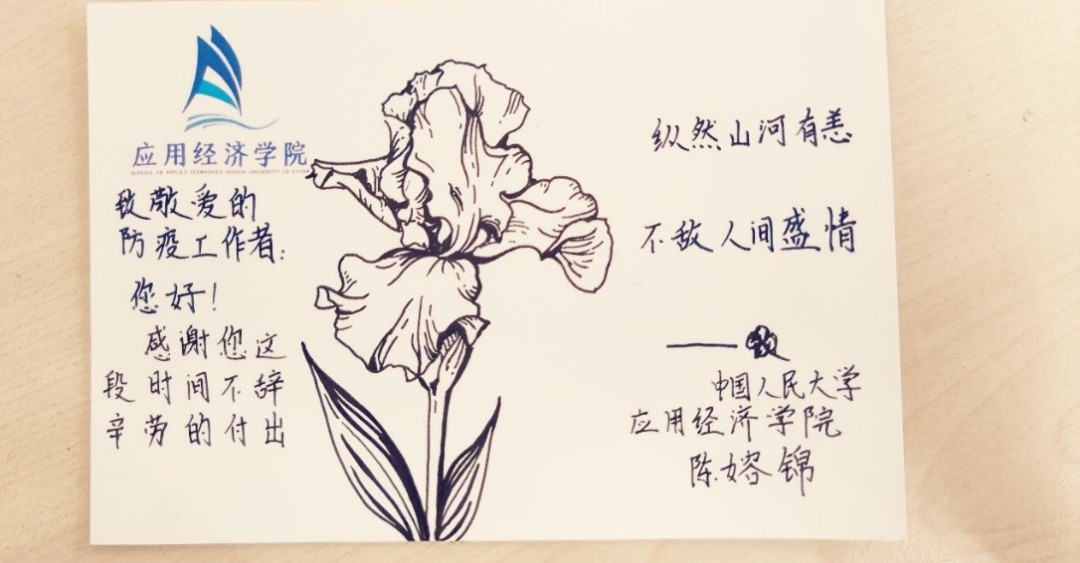 应用经济学院
SCHOOL OF APPLIED ECONOMICS RENMIN UNIVERSITY OF CHINA
致敬爱的
防疫工作者:
您好!
感谢您这
段时间不辞
辛劳的付出
纵然山河有恙
不敌人间盛情
——
中国人民大学
应用经济学院
陈嫆锦